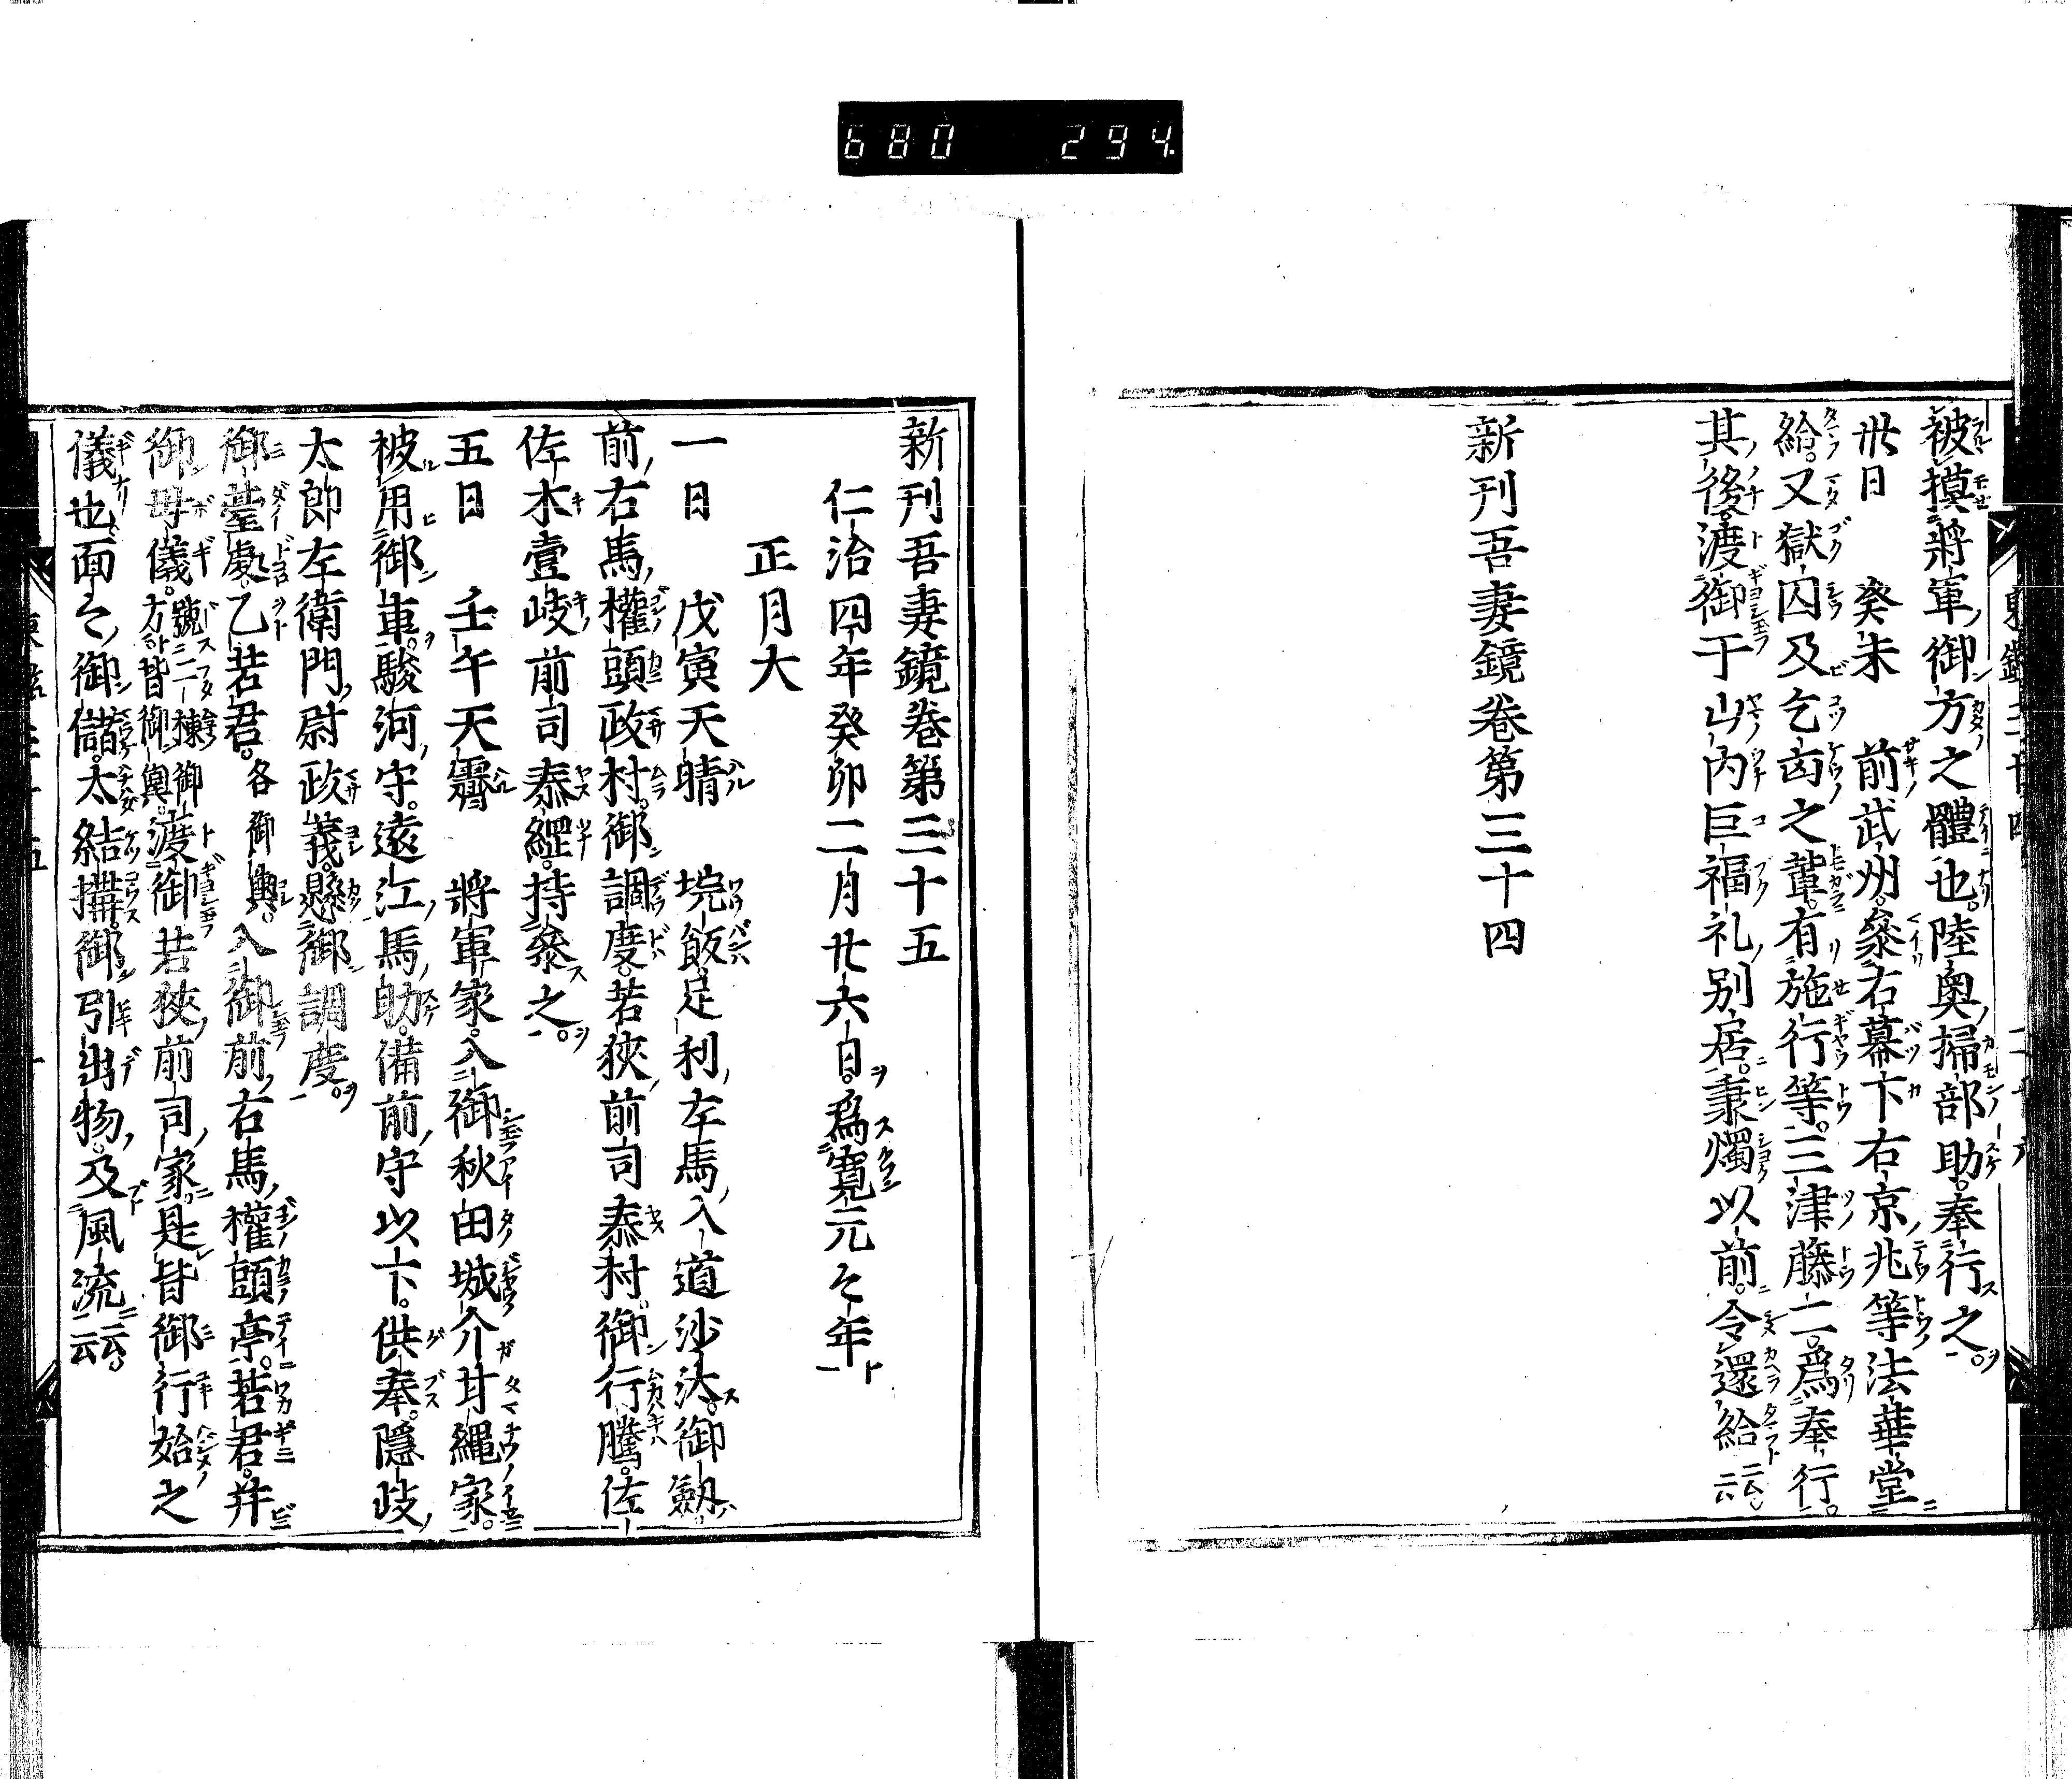 680 294
被摸將軍御方之體也陸奥掃部助奉行之
丗日 癸未 前武州參右幕下右京兆等法華堂
給又獄囚及乞丐之輩有施行等三津藤二爲奉行
其後渡御于山内巨福礼別居秉燭以前令還給云云
新刊吾妻鏡巻第三十四
新刊吾妻鏡巻第三十五
仁治四年癸卯二月廿六日爲寛元々年
正月大
一日 戊寅天晴 垸飯足利左馬入道沙汰御劔
前右馬權頭政村御調度若狹前司泰村御行騰佐
佐木壹岐前司泰綱持參之
五日 壬午天霽 將軍家入御秋田城介甘縄家
被用御車駿河守遠江馬助備前守以下供奉隱岐
太郎左衛門尉政義懸御調度
御臺處乙若君各御輿入御前右馬權頭亭若君并
御母儀號二棟御方皆御輿渡御若狹前司家是皆御行始之
儀也面々御儲太結搆御引出物及風流云云